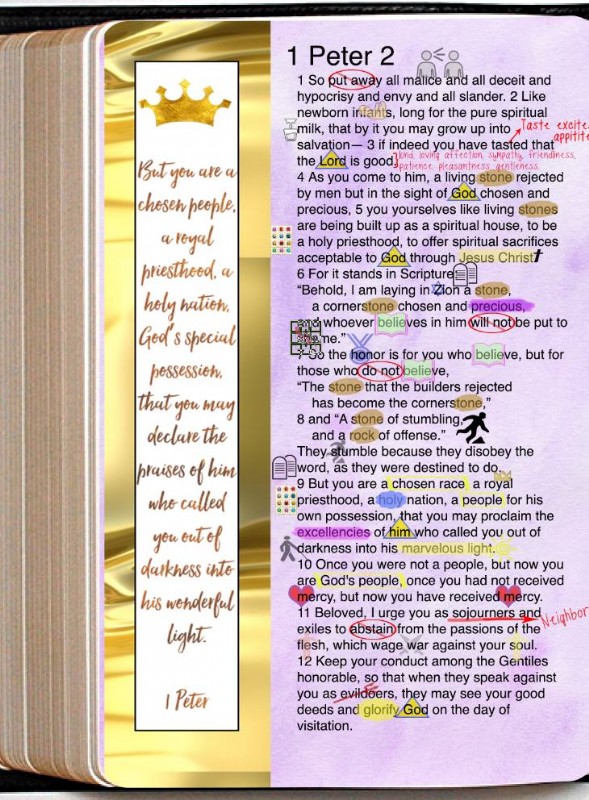 But you are a
chosen people,
a royal
priesthood, a
holy nation,
God's special
possession,
that you may
declare the
praises of him
who called
you out of
darkness into
his wonderful
light.
1 Peter
1 Peter 2
1 So put away all malice and all deceit and
hypocrisy and envy and all slander. 2 Like
newborn infants, long for the pure spiritual
milk, that by it you may grow up into
Taste excite
appitite
salvation— 3 if indeed you have tasted that
the Lord is good.
kind, loving affection, sympathy, friendliness,
patience, pleasantness, gentleness
4 As you come to him, a living stone rejected
by men but in the sight of God chosen and
precious, 5 you yourselves like living stones
are being built up as a spiritual house, to be
a holy priesthood, to offer spiritual sacrifices
acceptable to God through Jesus Christ
6 For it stands in Scripture
“Behold, I am laying in Zion a stone,
a cornerstone chosen and precious,
and whoever believes in him will not be put to
shame.”
7 So the honor is for you who believe, but for
those who do not believe,
“The stone that the builders rejected
has become the cornerstone,”
8 and “A stone of stumbling,
and a rock of offense.”
They stumble because they disobey the
word, as they were destined to do.
9 But you are a chosen race, a royal
priesthood, a holy nation, a people for his
own possession, that you may proclaim the
excellencies of him who called you out of
darkness into his marvelous light.
10 Once you were not a people, but now you
are God's people; once you had not received
mercy, but now you have received mercy.
11 Beloved, I urge you as sojourners and
Neighbor
exiles to abstain from the passions of the
flesh, which wage war against your soul.
12 Keep your conduct among the Gentiles
honorable, so that when they speak against
you as evildoers, they may see your good
deeds and glorify God on the day of
visitation.